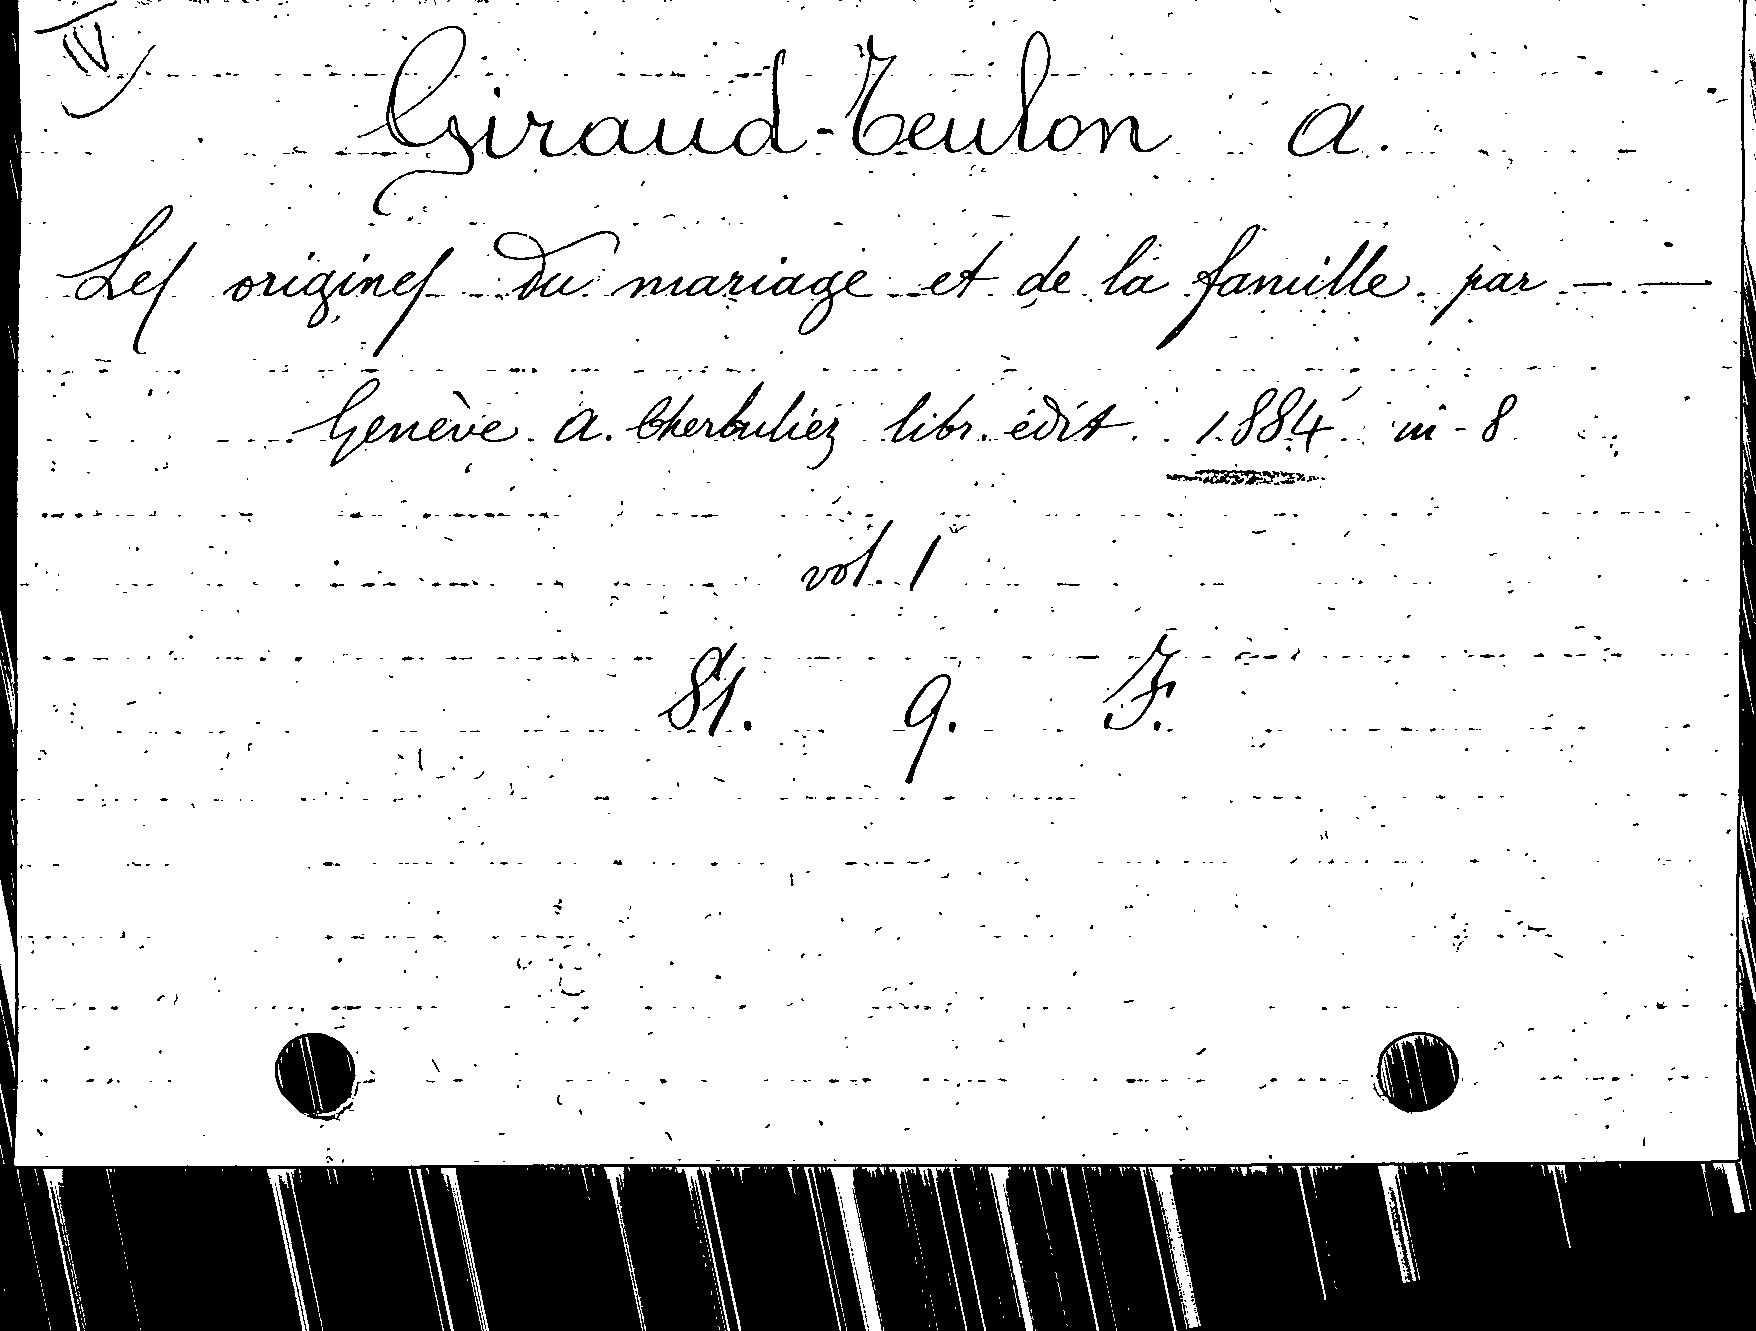 IV
Giraud-Teulon A.
Les origines du mariage et de la famille par — —
Genève A. Cherbuliez libr. édit. 1884 in-8
vol. 1
St. 9. F.